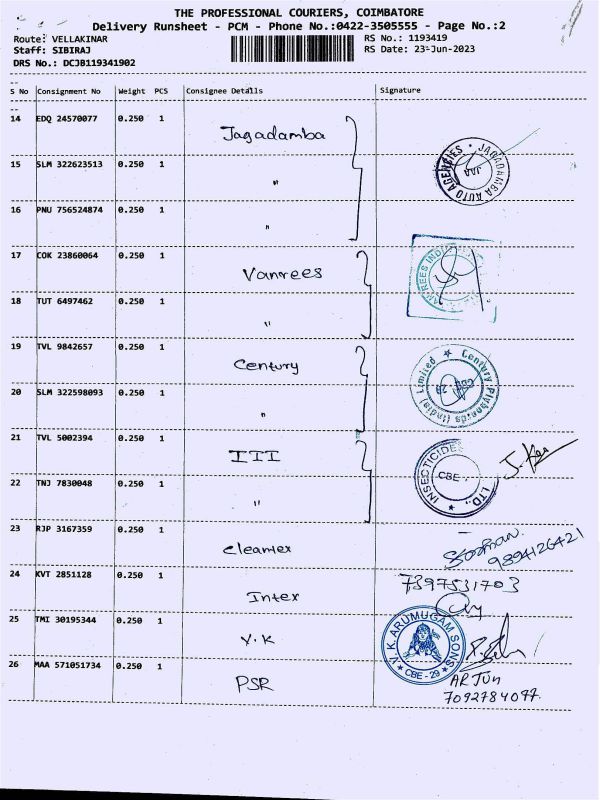 THE PROFESSIONAL COURIERS, COIMBATORE
Delivery Runsheet - PCM - Phone No.:0422-3505555 - Page No.:2
Route: VELLAKINAR RS No.: 1193419
Staff: SIBIRAJ RS Date: 23-Jun-2023
DRS No.: DCJB119341902
S No Consignment No Weight PCS Consignee Details Signature
14 EDQ 24570077 0.250 1 Jagadamba
JAGADAMBA AUTO AGENCIES
15 SLM 322623513 0.250 1 "
16 PNU 756524874 0.250 1 "
17 COK 23860064 0.250 1 Vanrees
18 TUT 6497462 0.250 1 "
19 TVL 9842657 0.250 1 Century
Century Plyboards (India) Limited
20 SLM 322598093 0.250 1 "
21 TVL 5002394 0.250 1 III
INSECTICIDES LTD.,
CBE
22 TNJ 7830048 0.250 1 "
23 RJP 3167359 0.250 1 Cleantex
9894126421
24 KVT 2851128 0.250 1 Intex 7397531703
25 TMI 30195344 0.250 1 V.K
V. K. ARUMUGAM SONS
CBE - 29
26 MAA 571051734 0.250 1 PSR ARJUN
7092784077